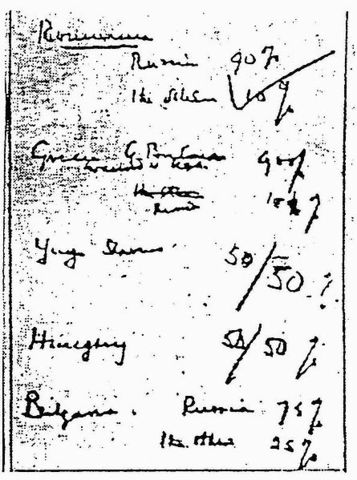 Roumania
Russia 90%
The others 10%
Greece G. Britain 90%
in accord with USA
Russia 10%
Yugoslavia 50/50 %
Hungary 50/50 %
Bulgaria . Russia 75%
The others 25%